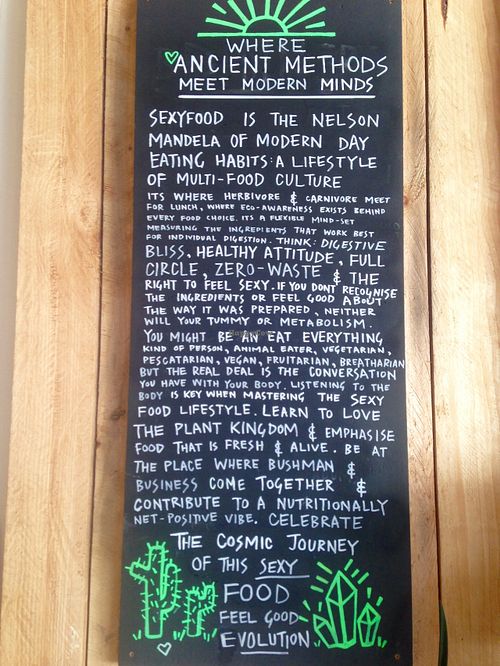 WHERE
ANCIENT METHODS
MEET MODERN MINDS
SEXYFOOD IS THE NELSON
MANDELA OF MODERN DAY
EATING HABITS: A LIFESTYLE
OF MULTI-FOOD CULTURE
ITS WHERE HERBIVORE & CARNIVORE MEET
FOR LUNCH, WHERE ECO-AWARENESS EXISTS BEHIND
EVERY FOOD CHOICE. ITS A FLEXIBLE MIND-SET
MEASURING THE INGREDIENTS THAT WORK BEST
FOR INDIVIDUAL DIGESTION. THINK: DIGESTIVE
BLISS, HEALTHY ATTITUDE, FULL
CIRCLE, ZERO-WASTE & THE
RIGHT TO FEEL SEXY. IF YOU DONT RECOGNISE
THE INGREDIENTS OR FEEL GOOD ABOUT
THE WAY IT WAS PREPARED, NEITHER
WILL YOUR TUMMY OR METABOLISM.
YOU MIGHT BE AN EAT EVERYTHING
KIND OF PERSON, ANIMAL EATER, VEGETARIAN,
PESCATARIAN, VEGAN, FRUITARIAN, BREATHARIAN
BUT THE REAL DEAL IS THE CONVERSATION
YOU HAVE WITH YOUR BODY. LISTENING TO THE
BODY IS KEY WHEN MASTERING THE SEXY
FOOD LIFESTYLE. LEARN TO LOVE
THE PLANT KINGDOM & EMPHASISE
FOOD THAT IS FRESH & ALIVE. BE AT
THE PLACE WHERE BUSHMAN &
BUSINESS COME TOGETHER &
CONTRIBUTE TO A NUTRITIONALLY
NET-POSITIVE VIBE. CELEBRATE
THE COSMIC JOURNEY
OF THIS SEXY
FOOD
FEEL GOOD
EVOLUTION